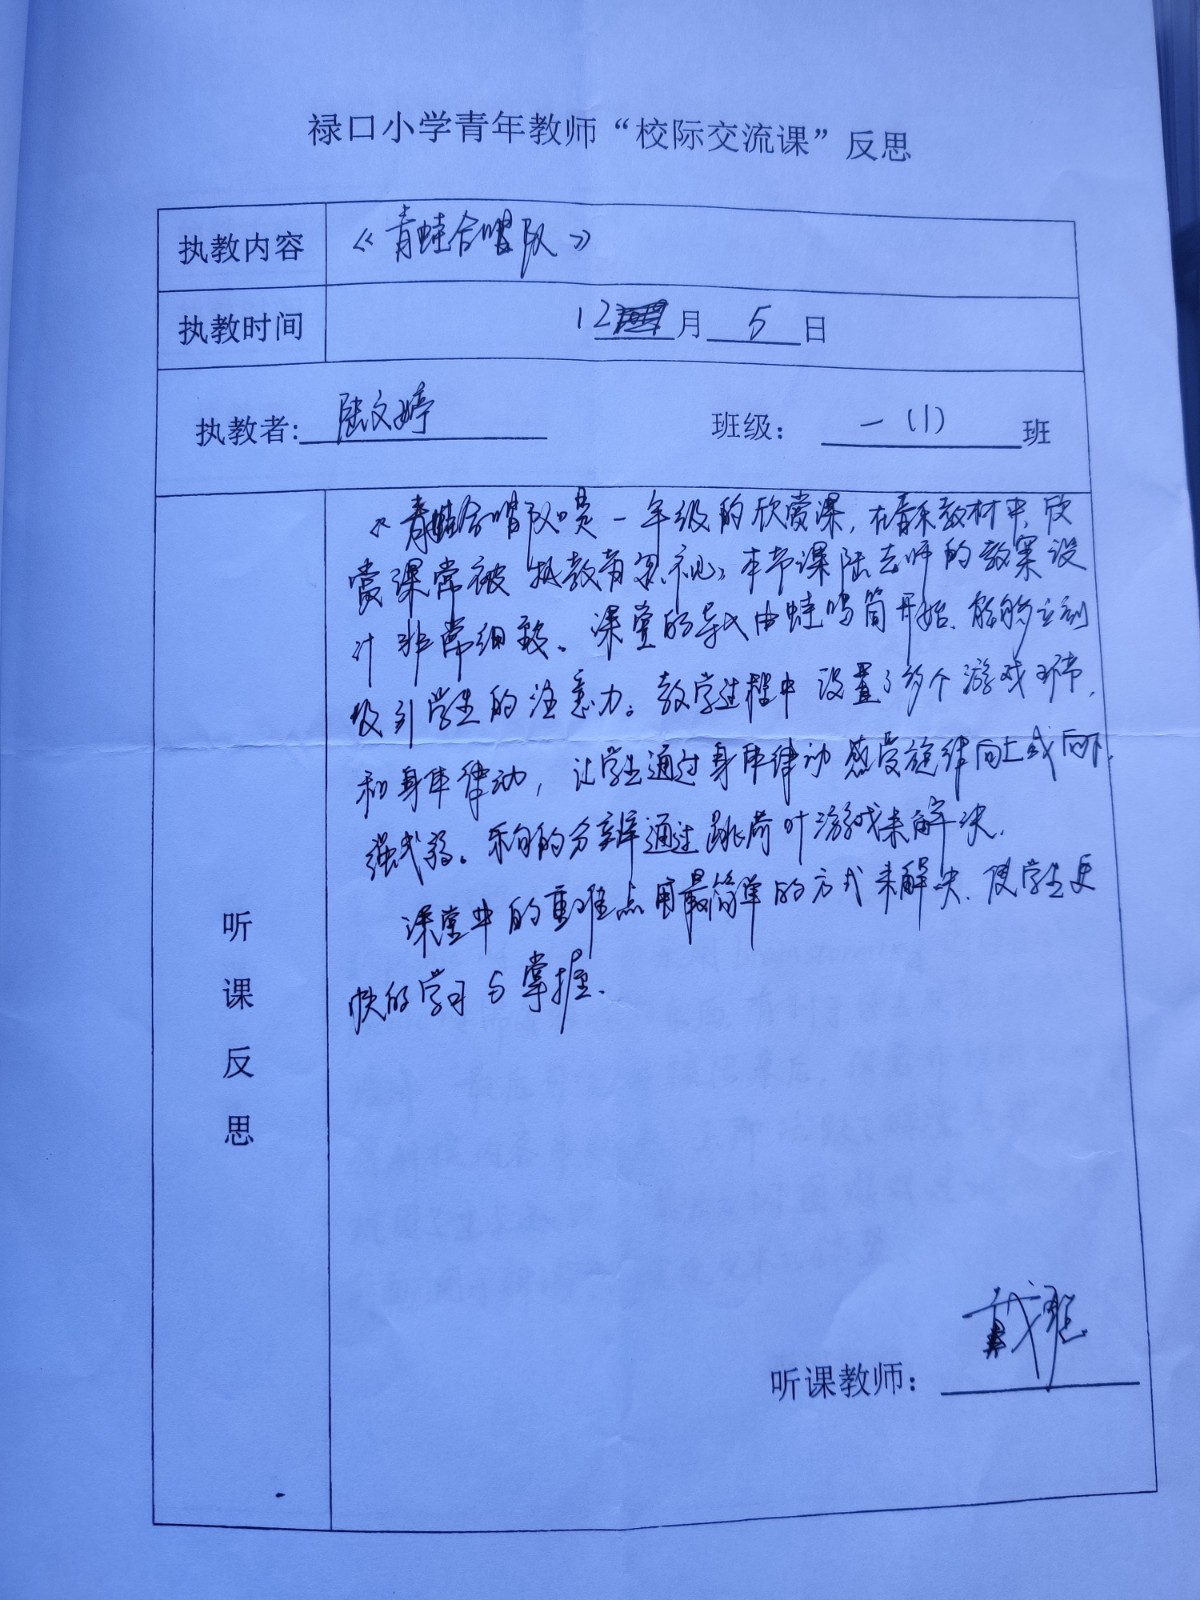 禄口小学青年教师“校际交流课”反思
执教内容
《青蛙合唱队》
执教时间
12月5日
执教者:陆文婷
班级：一(1)班
听课反思
《青蛙合唱队》是一年级的欣赏课，在音乐教材中，欣
赏课常被执教者忽视，本节课陆老师的教案设
计非常细致。课堂的导入由蛙鸣筒开始，能够立刻
吸引学生的注意力。教学过程中设置了多个游戏环节，
和身体律动，让学生通过身体律动感受旋律向上或向下，
强或弱。乐句的分辨通过跳荷叶游戏来解决。
课堂中的重难点用最简单的方式来解决，使学生更
快的学习与掌握。
听课教师：戴